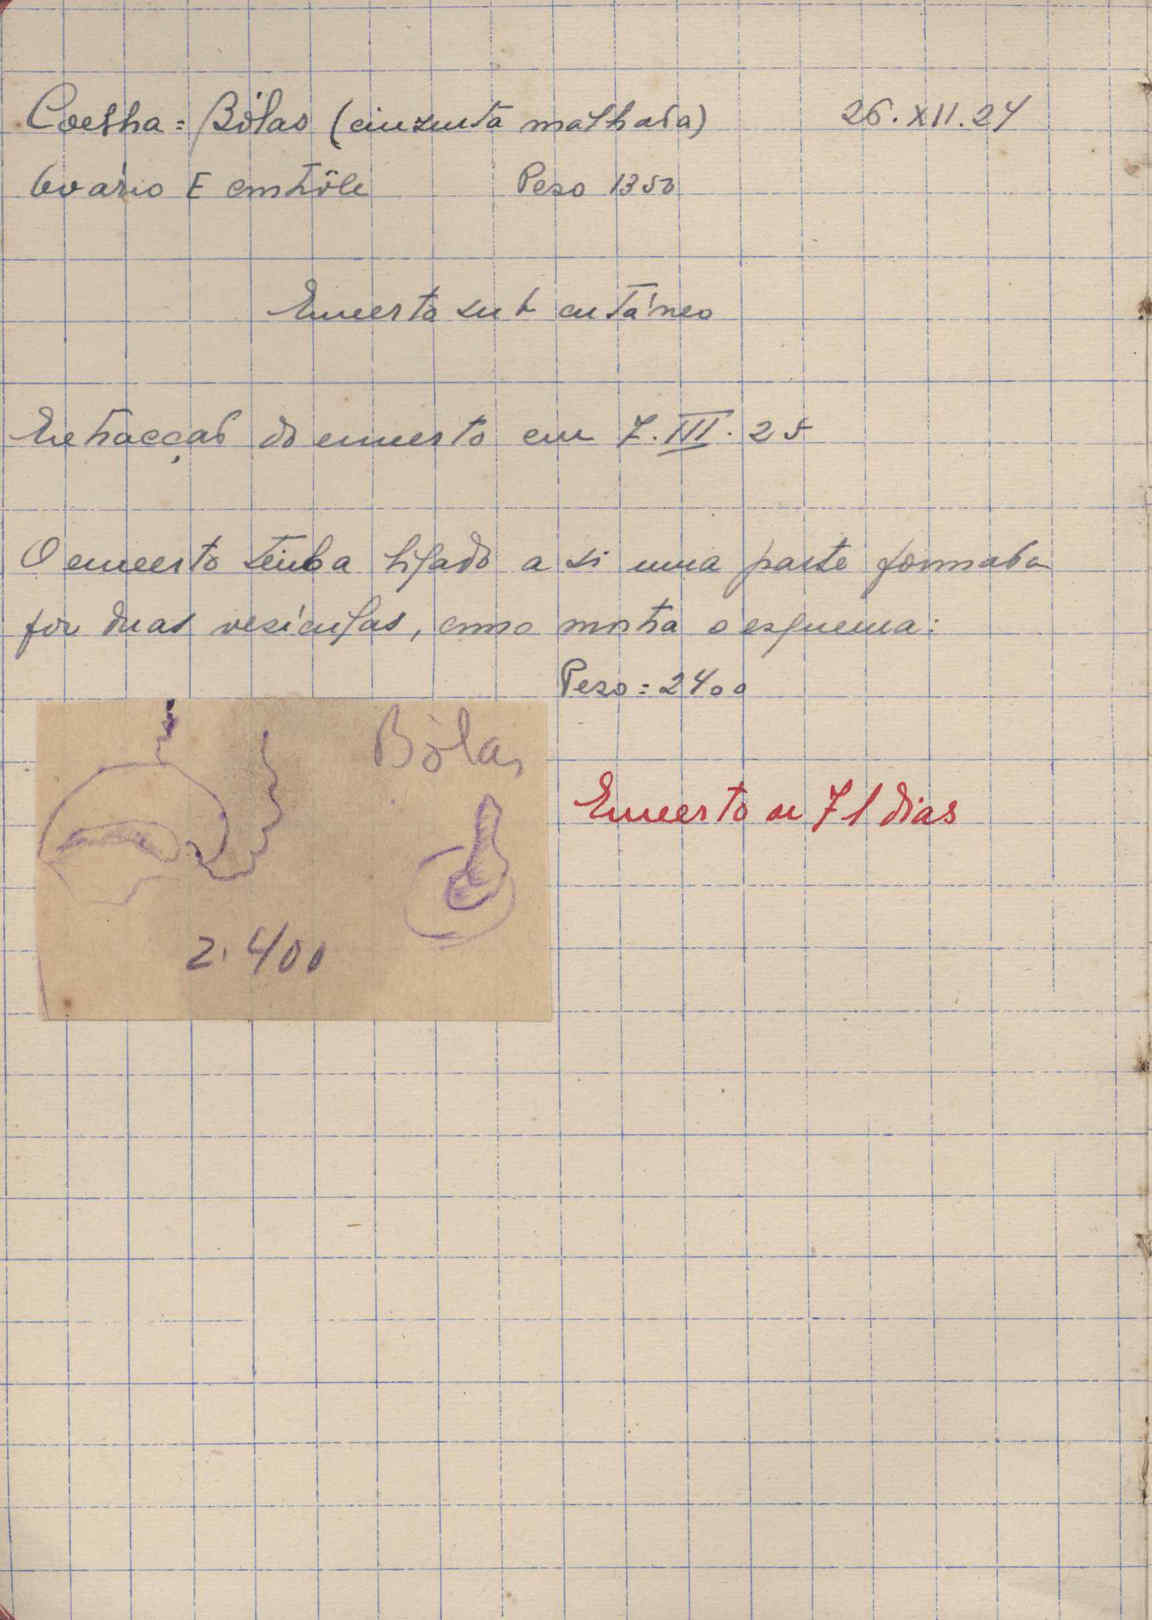 Coelha = Bólas (cinzenta malhada) 26.XII.24
Ovário E contrôle Peso 1350
Enxerto sub cutâneo
Extracção do enxerto em 7.III.25
O enxerto tinha ligado a si uma parte formada
por duas vesículas, como mostra o esquema:
Peso = 2400
Bólas
Enxerto de 71 dias
2.400